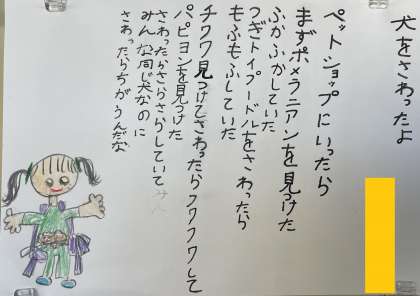 犬をさわったよ
ペットショップにいったら
まずポメラニアンを見つけた
ふかふかしていた
つぎトイプードルをさわったら
もふもふしていた
チワワ見つけてさわったらフワフワして
パピヨンを見つけた
さわったらさらさらしていて
みんな同じ犬なのに
さわったらちがうんだな